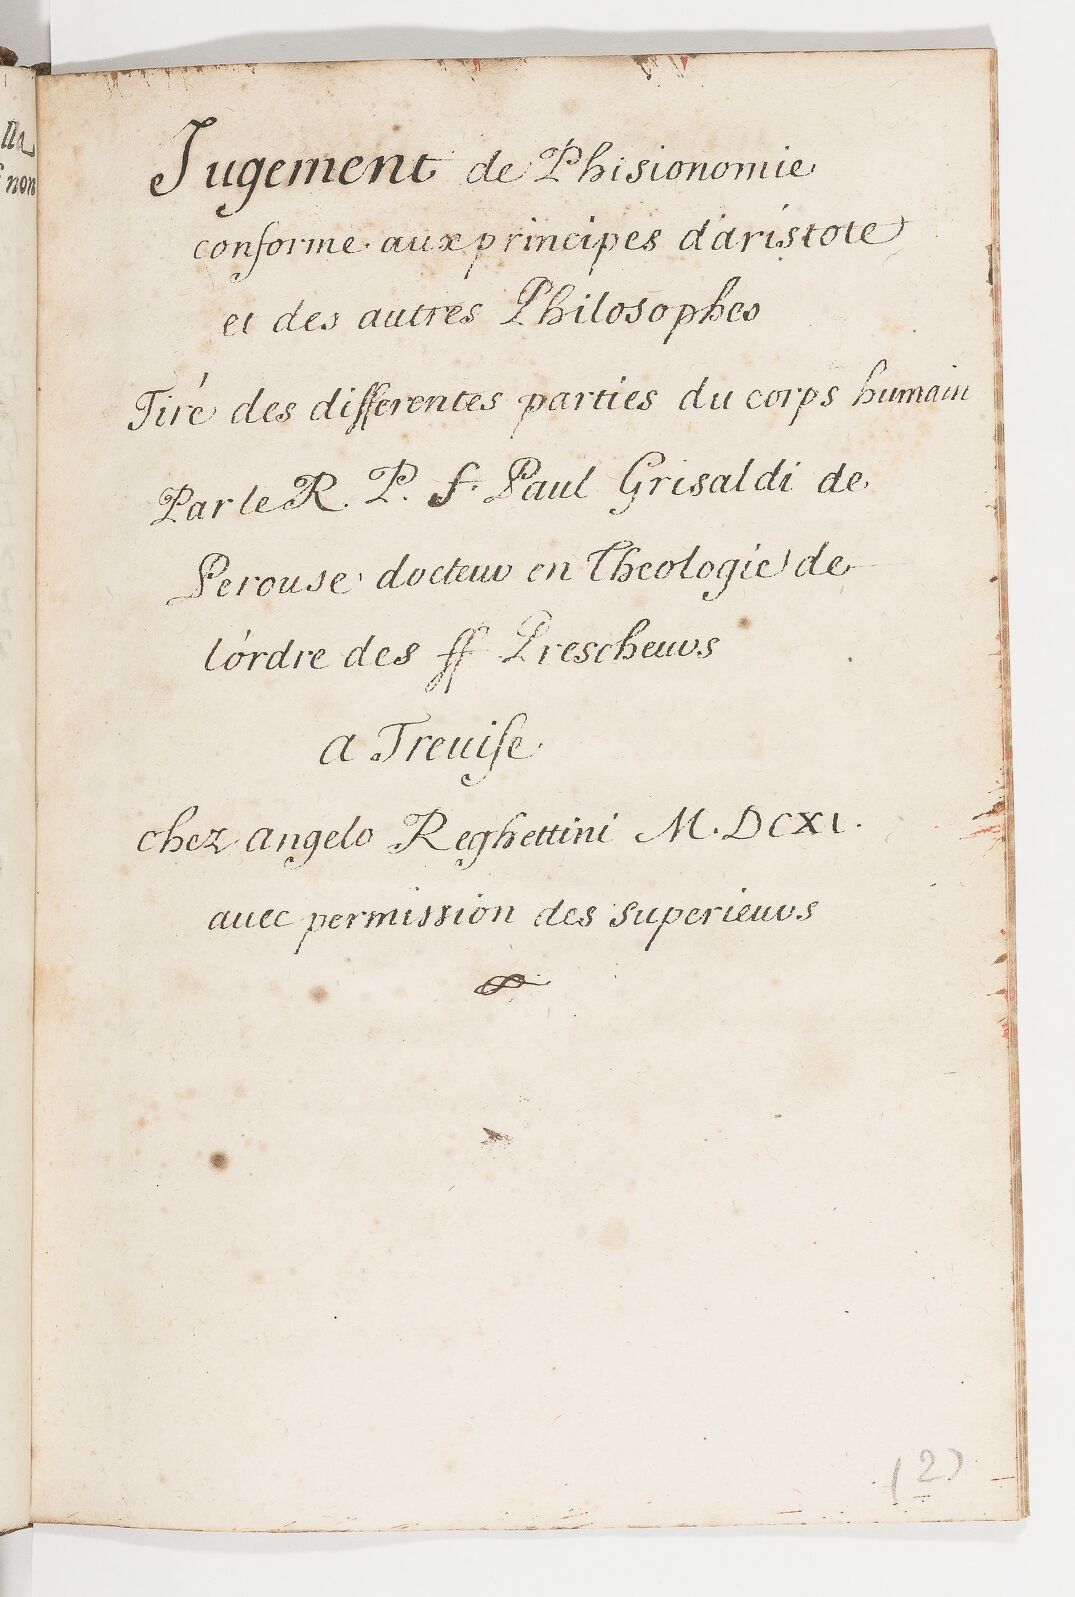 lla
non
Jugement de Phisionomie
conforme aux principes d'aristote
et des autres Philosophes
Tiré des differentes parties du corps humain
Par le R. P. f. Paul Grisaldi de
Perouse docteur en Theologie de
l'ordre des ff Prescheurs
a Treuise
chez angelo Reghettini M.DCXI.
auec permission des superieurs
(2)